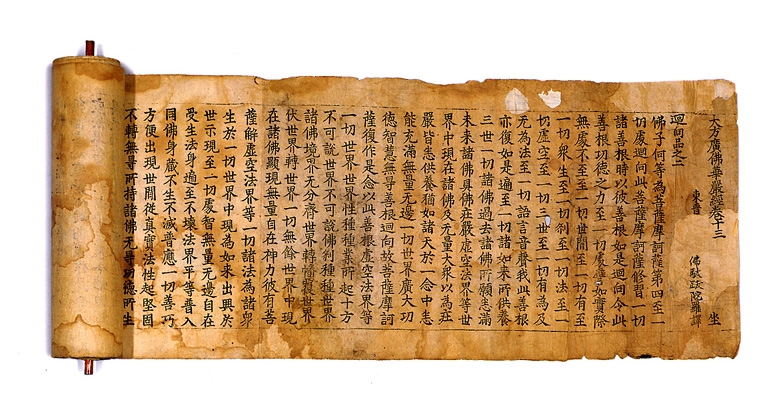 大方廣佛華嚴經卷十三 坐
迴向品之二 東晉 佛馱跋陀羅譯
佛子何等為菩薩摩訶薩第四至一
切處迴向此菩薩摩訶薩修習一切
諸善根時以彼善根如是迴向令此
善根功德之力至一切處譬如實際
無處不至至一切世間至一切有至
一切衆生至一切刹至一切法至一
切虛空至一切三世至一切有為及
无為法至一切語言音聲我此善根
亦復如是遍至一切諸如來所供養
三世一切諸佛過去諸佛所願悉滿
未來諸佛具佛莊嚴虛空法界等世
界中現在諸佛及无量大衆以為莊
嚴皆悉供養猶如諸天於一念中悉
能充滿無量无邊一切世界廣大功
德智慧無㝵善根迴向故菩薩摩訶
薩復作是念以此善根虛空法界等
一切世界世界性種種業所起十方
不可說世界不可說佛刹種種世界
諸佛境界无分齊世界轉世界
伏世界轉世界一切無餘世界中現
在諸佛顯現無量自在神力彼有菩
薩解虛空法界等一切諸法為諸衆
生於一切世界中現為如來出興於
世示現至一切處智無量无邊自在
受生法身遍至不壞法界平等普入
同佛身藏不生不滅普應一切善巧
方便出現世間從真實法性起堅固
不轉無㝵所持諸佛无㝵功德所生